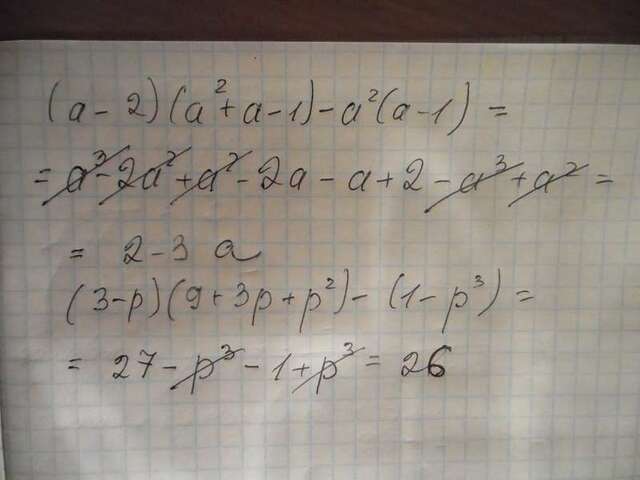 (a - 2)(a² + a - 1) - a²(a - 1) =
= a³ - 2a² + a² - 2a - a + 2 - a³ + a² =
= 2 - 3 a
(3 - p)(9 + 3p + p²) - (1 - p³) =
= 27 - p³ - 1 + p³ = 26